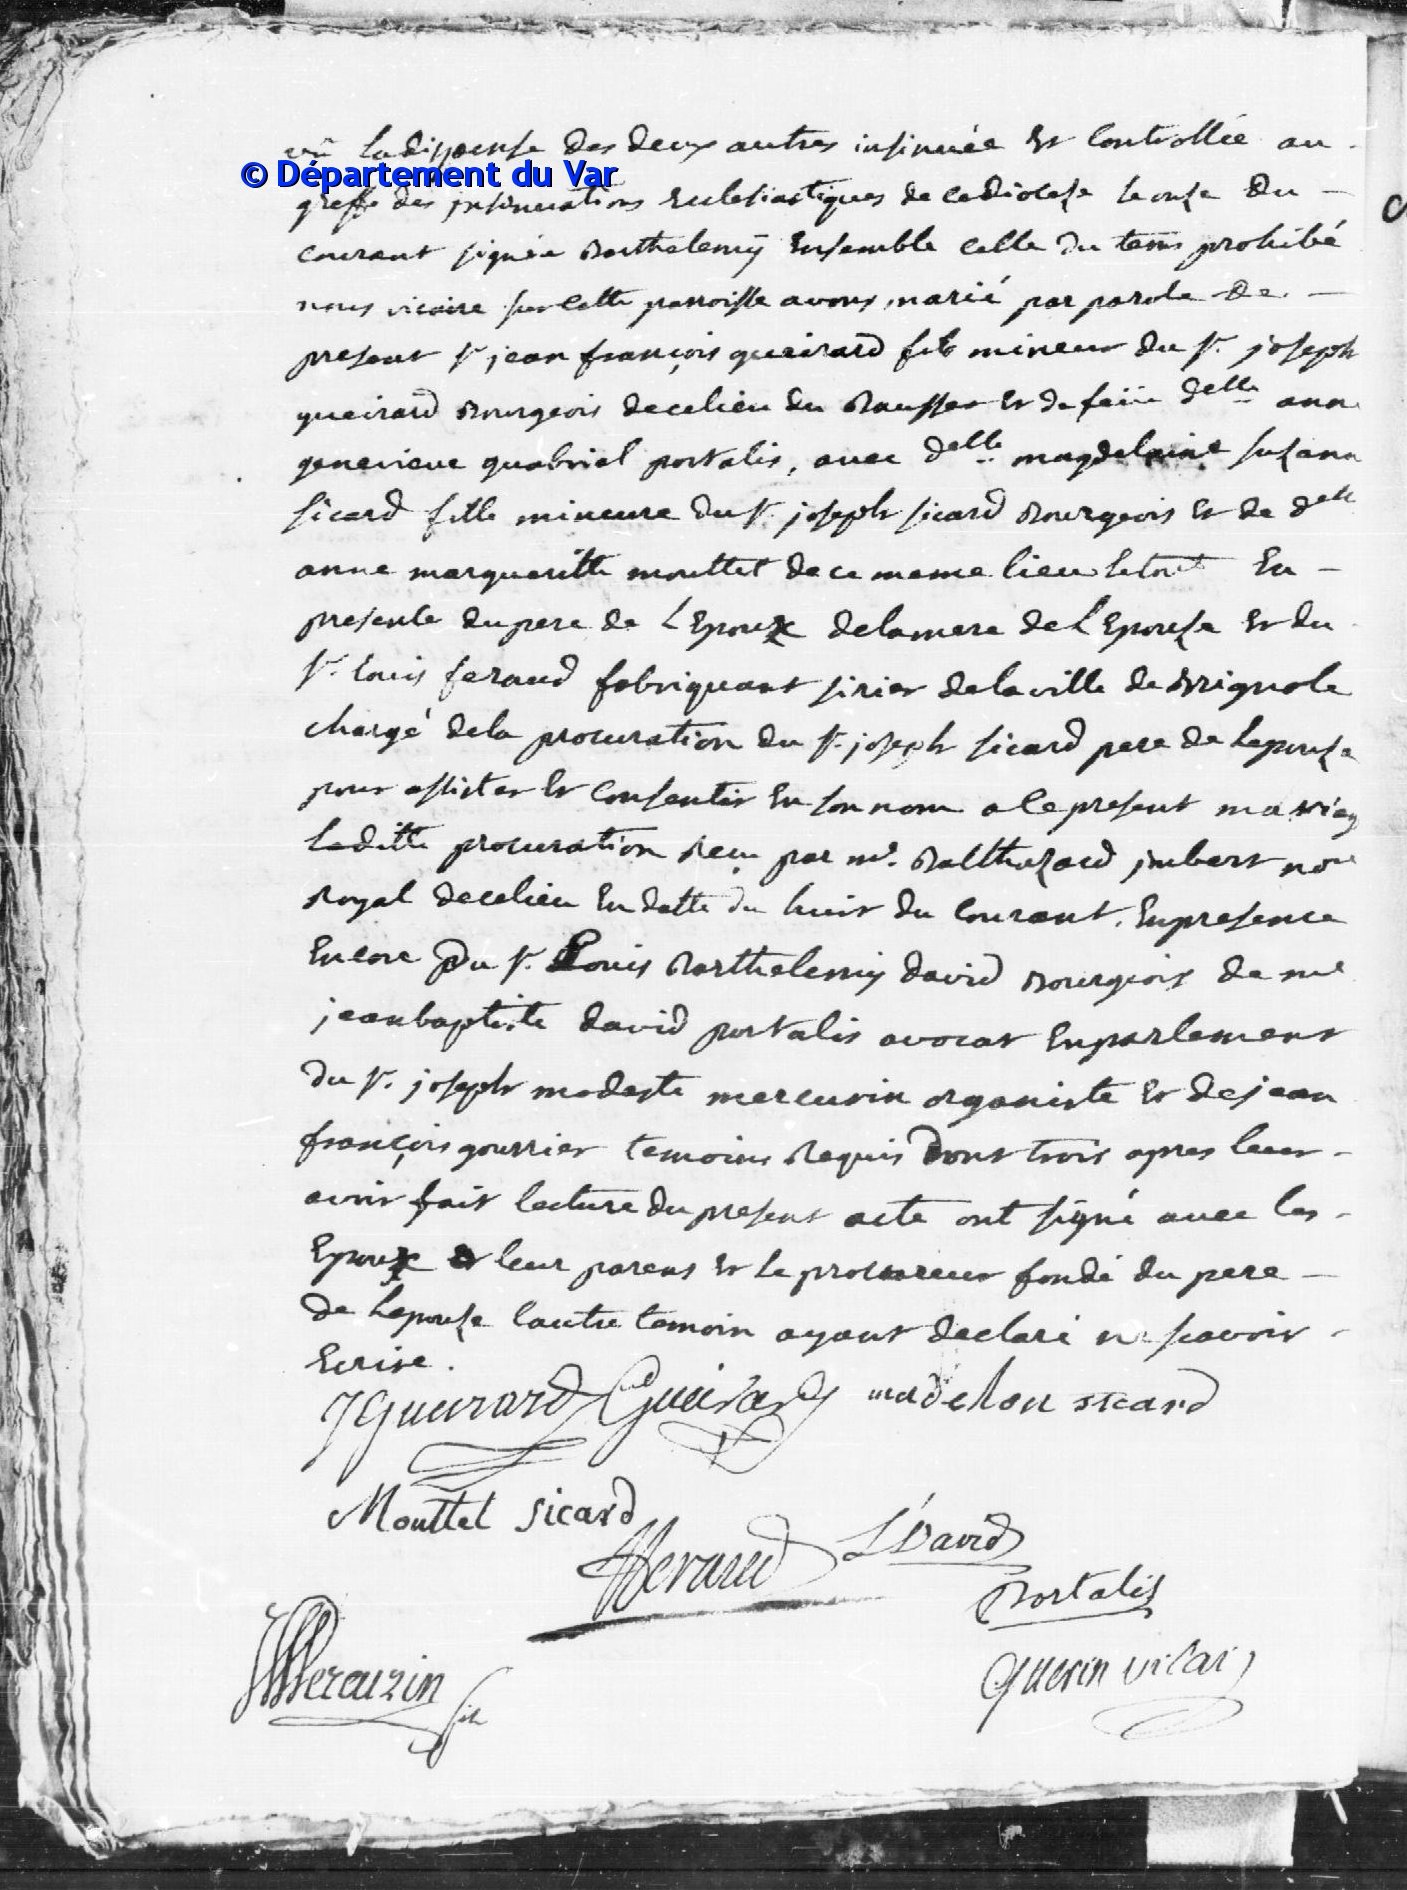 vû la dispense des deux autres insinuée et controllée au
© Département du Var
greffe des insinuations ecclesiastiques de ce diocese le onze du
courant signée Barthelemy ensemble celle du tems prohibé
nous vicaire sur cette parroisse avons marié par parole de
present sr jean françois gueirard fils mineur du sr. joseph
gueirard Bourgeois de ce lieu du Bausset et de feüe delle anne
genevieve guabriel portalis, avec delle magdelaine suzann
sicard fille mineure du sr. joseph sicard Bourgeois et de delle
anne margueritte mouttet de ce meme lieu le tout En
presence du pere de L'Epoux de la mere de L'Epouse et du
sr. louis feraud fabriquant sirier de la ville de Brignole
chargé de la procuration du sr. joseph sicard pere de Lepouse
pour assister et consentir En son nom a le present mariag
Laditte procuration Reçu par me. Balthazard jmbert nore
Royal de ce lieu En datte du huit du courant. En presence
Encore Du sr. Louis Barthelemy david Bourgeois de me
jean baptiste david portalis avocat En parlement
du sr. joseph modeste mercurin organiste et de jean
françois gourrier temoins Requis dont trois apres leur
avoir fait lecture du present acte ont signé avec les
Epoux et leur parens et le procureur fondé du pere
de Lepouse l'autre temoin ayant declaré ne scavoir
Ecrire.
JGueirard Gueirard madelon sicard
Mouttet Sicard
Feraud L David
Portalis
Mercurin fils
Guerin vicair